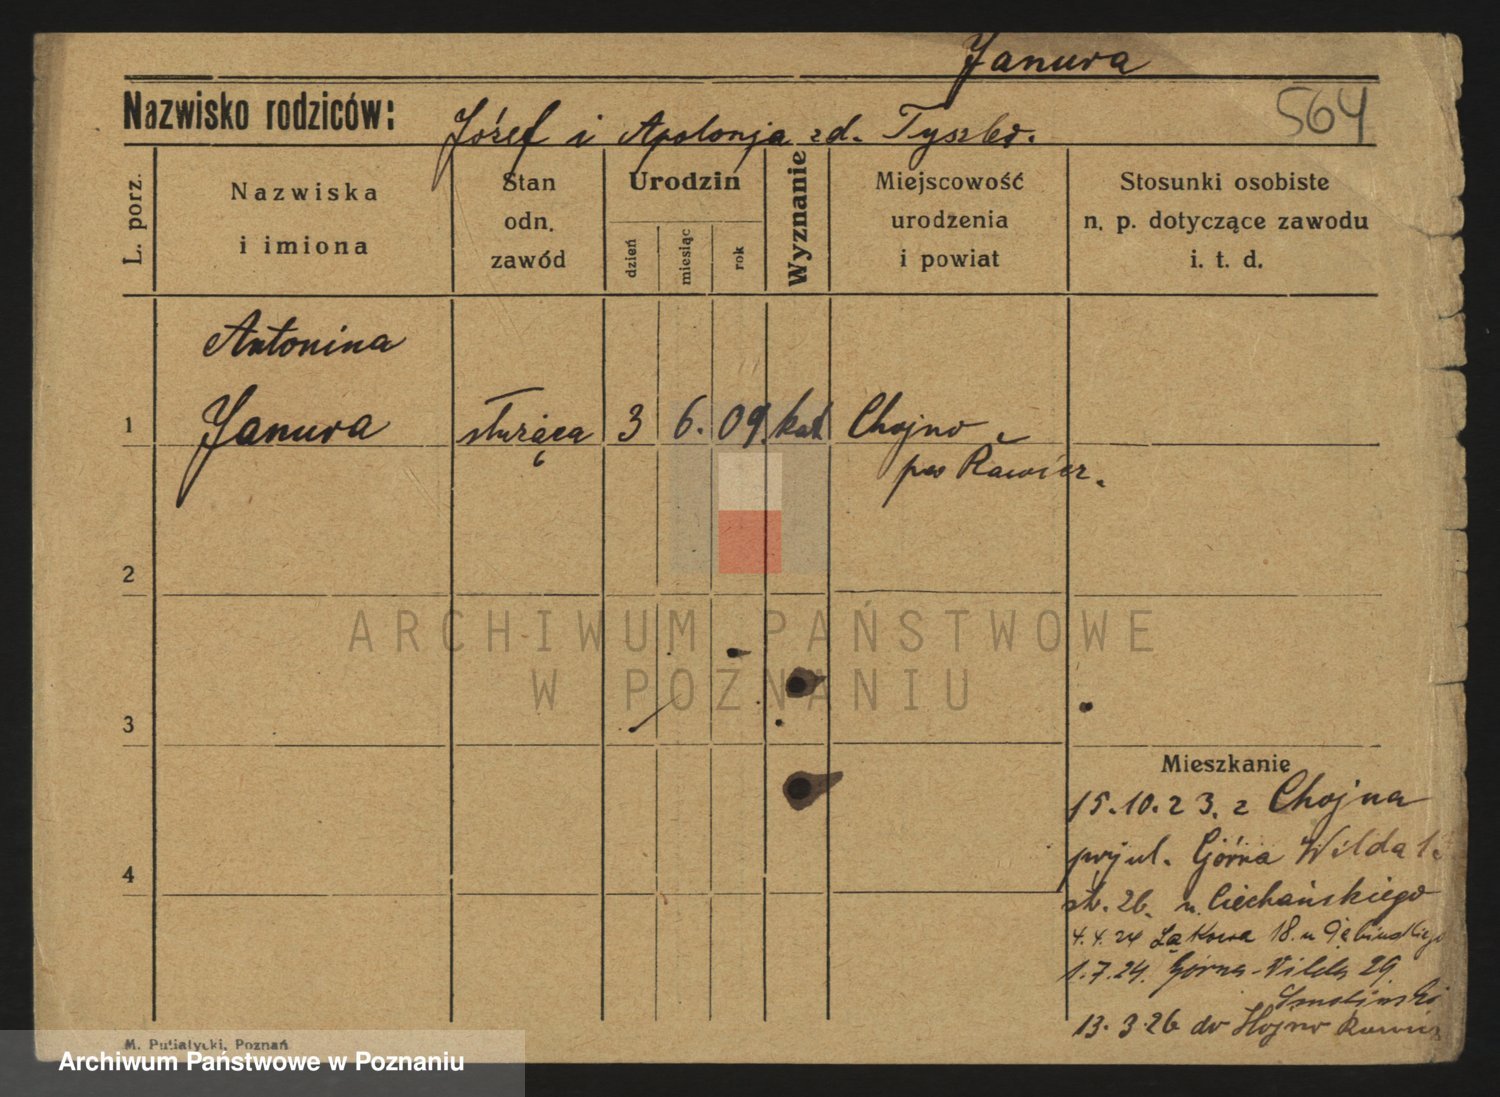 Janura
564
Nazwisko rodziców: Józef i Apolonja zd. Tyszko.
L. porz.
Nazwiska
i imiona
Stan
odn.
zawód
Urodzin
dzień
miesiąc
rok
Wyznanie
Miejscowość
urodzenia
i powiat
Stosunki osobiste
n. p. dotyczące zawodu
i. t. d.
Antonina
1 Janura służąca 3 6. 09. kat Chojno
pow Rawicz.
2
3
4
ARCHIWUM PAŃSTWOWE
W POZNANIU
Mieszkanie
15.10.23. z Chojna
przy ul. Górna Wilda
26. u. Ciechańskiego
4.4.24 Łąkowa 18. u
1.7.24. Górna-Wilda 29
Smoliński
13.3.26 do Hojno Rawicz
M. Putiatycki, Poznań
Archiwum Państwowe w Poznaniu